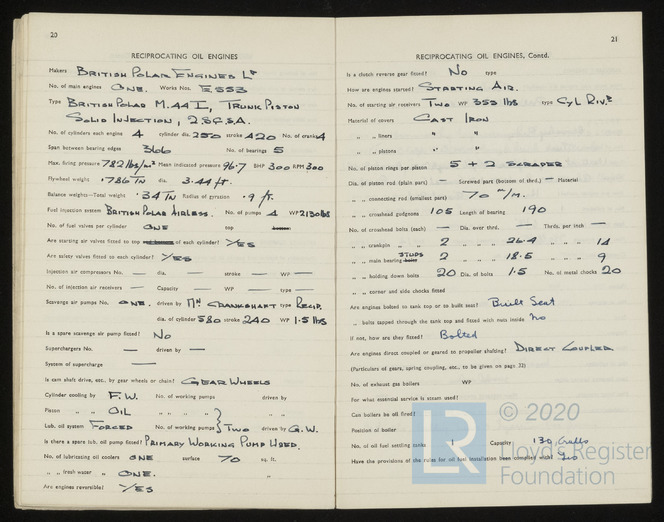 20
RECIPROCATING OIL ENGINES
Makers BRITISH POLAR ENGINES Ld
No. of main engines ONE. Works Nos. E 553
Type BRITISH POLAR M.44 I, TRUNK PISTON
SOLID INJECTION, 2.S.C.S.A.
No. of cylinders each engine 4 cylinder dia. 250 stroke 420 No. of cranks 4
Span between bearing edges 366 No. of bearings 5
Max. firing pressure 782 lbs/in2 Mean indicated pressure 96.7 BHP 300 RPM 300
Flywheel weight .786 TN dia. 3.44 ft.
Balance weights—Total weight .34 TN Radius of gyration .9 ft.
Fuel injection system BRITISH POLAR AIRLESS. No. of pumps 4 WP 2130 lbs
No. of fuel valves per cylinder ONE top bottom
Are starting air valves fitted to top of each cylinder? YES
Are safety valves fitted to each cylinder? YES
Injection air compressors No. — dia. — stroke — WP —
No. of injection air receivers — Capacity — WP — type —
Scavenge air pumps No. ONE. driven by MN CRANKSHAFT type RECIP.
dia. of cylinder 580 stroke 240 WP 1.5 lbs
Is a spare scavenge air pump fitted? No
Superchargers No. — driven by —
System of supercharge —
Is cam shaft drive, etc., by gear wheels or chain? GEAR WHEELS
Cylinder cooling by F.W. No. of working pumps driven by
Piston „ „ OIL „ „ „ „ „ „
Lub. oil system FORCED No. of working pumps } TWO driven by G.W.
Is there a spare lub. oil pump fitted? PRIMARY WORKING PUMP USED.
No. of lubricating oil coolers ONE surface 70 sq. ft.
„ „ fresh water „ ONE. „
Are engines reversible? YES
21
RECIPROCATING OIL ENGINES, Contd.
Is a clutch reverse gear fitted? No type
How are engines started? STARTING AIR.
No. of starting air receivers TWO WP 353 lbs type CYL RIV.
Material of covers CAST IRON
„ „ liners „ „
„ „ pistons „ „
No. of piston rings per piston 5 + 2 SCRAPER
Dia. of piston rod (plain part) — Screwed part (bottom of thrd.) — Material
„ „ connecting rod (smallest part) 70 m/m.
„ „ crosshead gudgeons 105 Length of bearing 190
No. of crosshead bolts (each) — Dia. over thrd. — Thrds. per inch —
„ „ crankpin „ „ 2 „ „ „ 26.4 „ „ „ 14
„ „ main bearing bolts STUDS 2 „ „ „ 18.5 „ „ „ 9
„ „ holding down bolts 20 Dia. of bolts 1.5 No. of metal chocks 20
„ „ corner and side chocks fitted
Are engines bolted to tank top or to built seat? Built Seat
„ bolts tapped through the tank top and fitted with nuts inside No
If not, how are they fitted? Bolted
Are engines direct coupled or geared to propeller shafting? DIRECT COUPLED
(Particulars of gears, spring coupling, etc., to be given on page 22)
No. of exhaust gas boilers WP
For what essential service is steam used?
Can boilers be oil fired?
Position of boiler
No. of oil fuel settling tanks 1 Capacity 130 Galls
Have the provisions of the rules for oil fuel installation been complied with? Yes
© 2020
LR
Lloyd's Register
Foundation